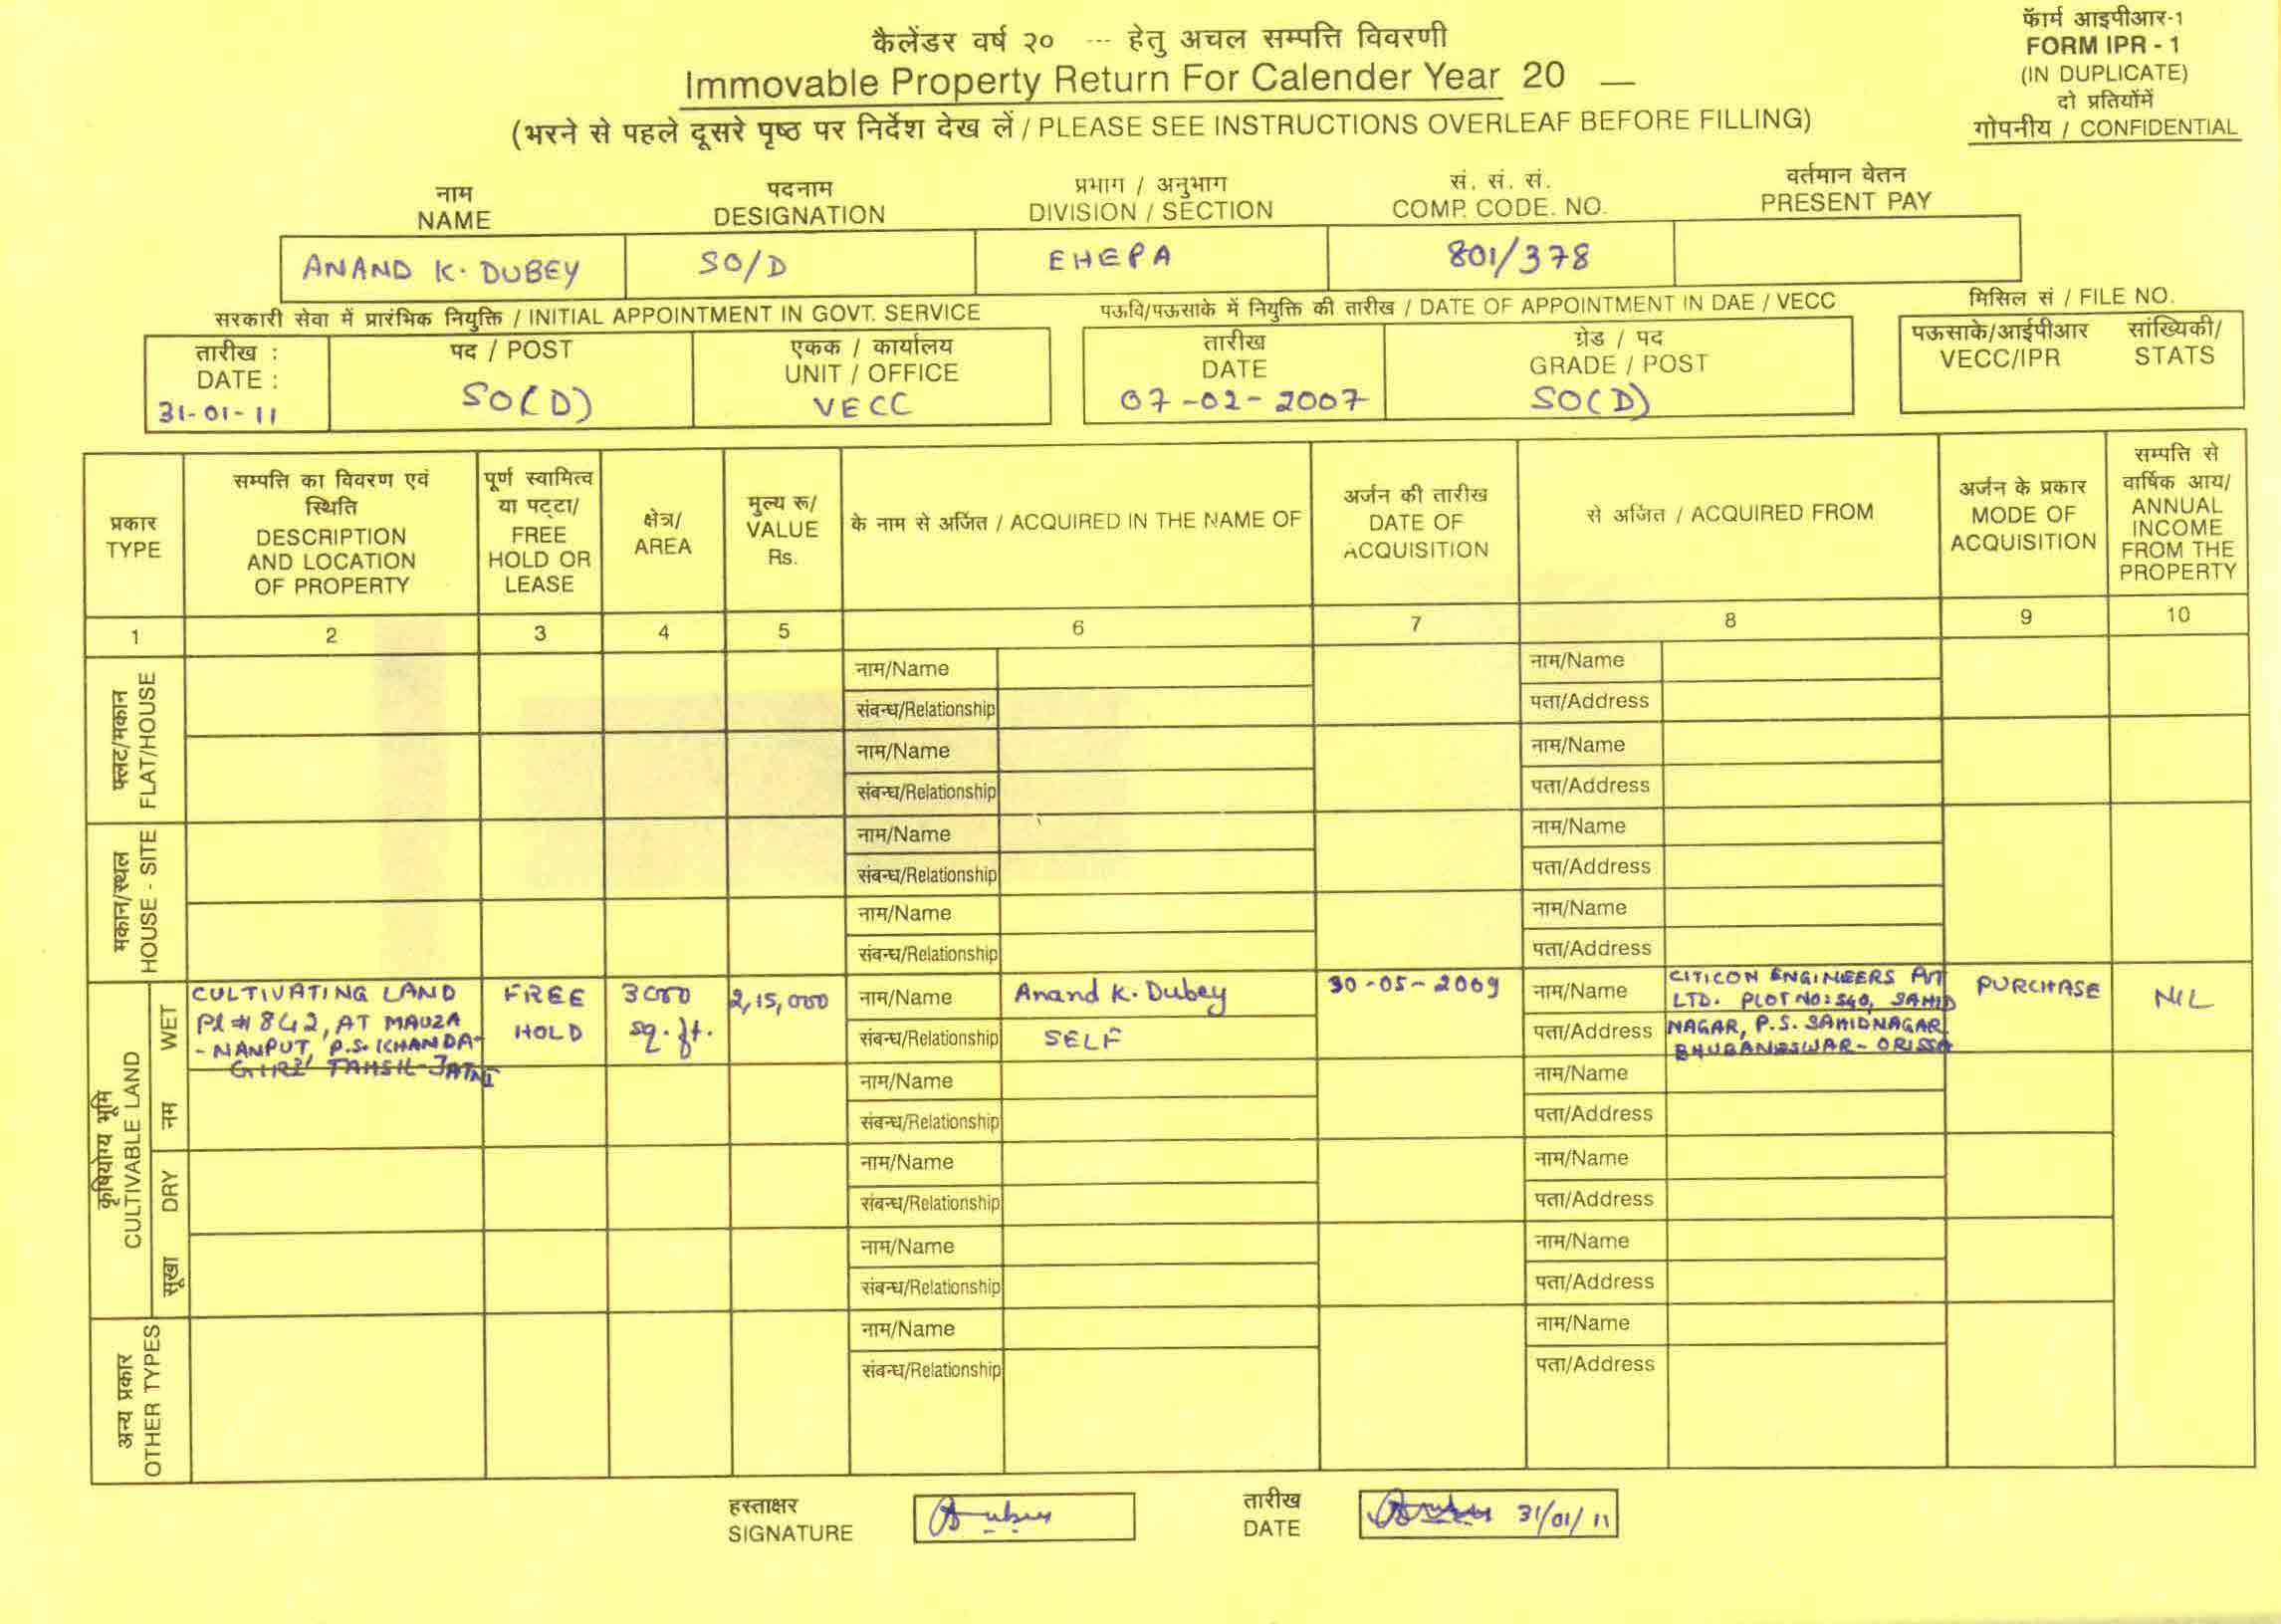 फॅार्म आइपीआर-1
FORM IPR - 1
(IN DUPLICATE)
दो प्रतियोंमें
गोपनीय / CONFIDENTIAL
कैलेंडर वर्ष २० --- हेतु अचल सम्पत्ति विवरणी
Immovable Property Return For Calender Year 20 —
(भरने से पहले दूसरे पृष्ठ पर निर्देश देख लें / PLEASE SEE INSTRUCTIONS OVERLEAF BEFORE FILLING)
नाम पदनाम प्रभाग / अनुभाग सं. सं. सं. वर्तमान वेतन
NAME DESIGNATION DIVISION / SECTION COMP. CODE. NO. PRESENT PAY
ANAND K. DUBEY SO/D EHEPA 801/378
सरकारी सेवा में प्रारंभिक नियुक्ति / INITIAL APPOINTMENT IN GOVT. SERVICE पऊवि/पऊसाके में नियुक्ति की तारीख / DATE OF APPOINTMENT IN DAE / VECC मिसिल सं / FILE NO.
तारीख : पद / POST एकक / कार्यालय तारीख ग्रेड / पद पऊसाके/आईपीआर सांख्यिकी/
DATE : UNIT / OFFICE DATE GRADE / POST VECC/IPR STATS
31-01-11 SO(D) VECC 07-02-2007 SO(D)
प्रकार
TYPE
सम्पत्ति का विवरण एवं
स्थिति
DESCRIPTION
AND LOCATION
OF PROPERTY
पूर्ण स्वामित्व
या पट्टा/
FREE
HOLD OR
LEASE
क्षेत्र/
AREA
मुल्य रू/
VALUE
Rs.
के नाम से अर्जित / ACQUIRED IN THE NAME OF
अर्जन की तारीख
DATE OF
ACQUISITION
से अर्जित / ACQUIRED FROM
अर्जन के प्रकार
MODE OF
ACQUISITION
सम्पत्ति से
वार्षिक आय/
ANNUAL
INCOME
FROM THE
PROPERTY
1 2 3 4 5 6 7 8 9 10
फ्लट/मकान
FLAT/HOUSE
नाम/Name नाम/Name
संबन्ध/Relationship पता/Address
नाम/Name नाम/Name
संबन्ध/Relationship पता/Address
मकान/स्थल
HOUSE - SITE
नाम/Name नाम/Name
संबन्ध/Relationship पता/Address
नाम/Name नाम/Name
संबन्ध/Relationship पता/Address
कृषियोग्य भूमि
CULTIVABLE LAND
नम WET
CULTIVATING LAND
Pl # 842, AT MAUZA
- NANPUT, P.S. KHANDA-
GIRI, TAHSIL-JATNI
FREE
HOLD
3000
sq. ft.
2,15,000
नाम/Name Anand K. Dubey
संबन्ध/Relationship SELF
30-05-2009
नाम/Name पता/Address
CITICON ENGINEERS PVT
LTD. PLOT NO: 540, SAHID
NAGAR, P.S. SAHIDNAGAR
BHUBANESWAR - ORISSA
PURCHASE
NIL
नाम/Name नाम/Name
संबन्ध/Relationship पता/Address
सूखा DRY
नाम/Name नाम/Name
संबन्ध/Relationship पता/Address
नाम/Name नाम/Name
संबन्ध/Relationship पता/Address
अन्य प्रकार
OTHER TYPES
नाम/Name नाम/Name
संबन्ध/Relationship पता/Address
हस्ताक्षर तारीख
SIGNATURE DATE 31/01/11